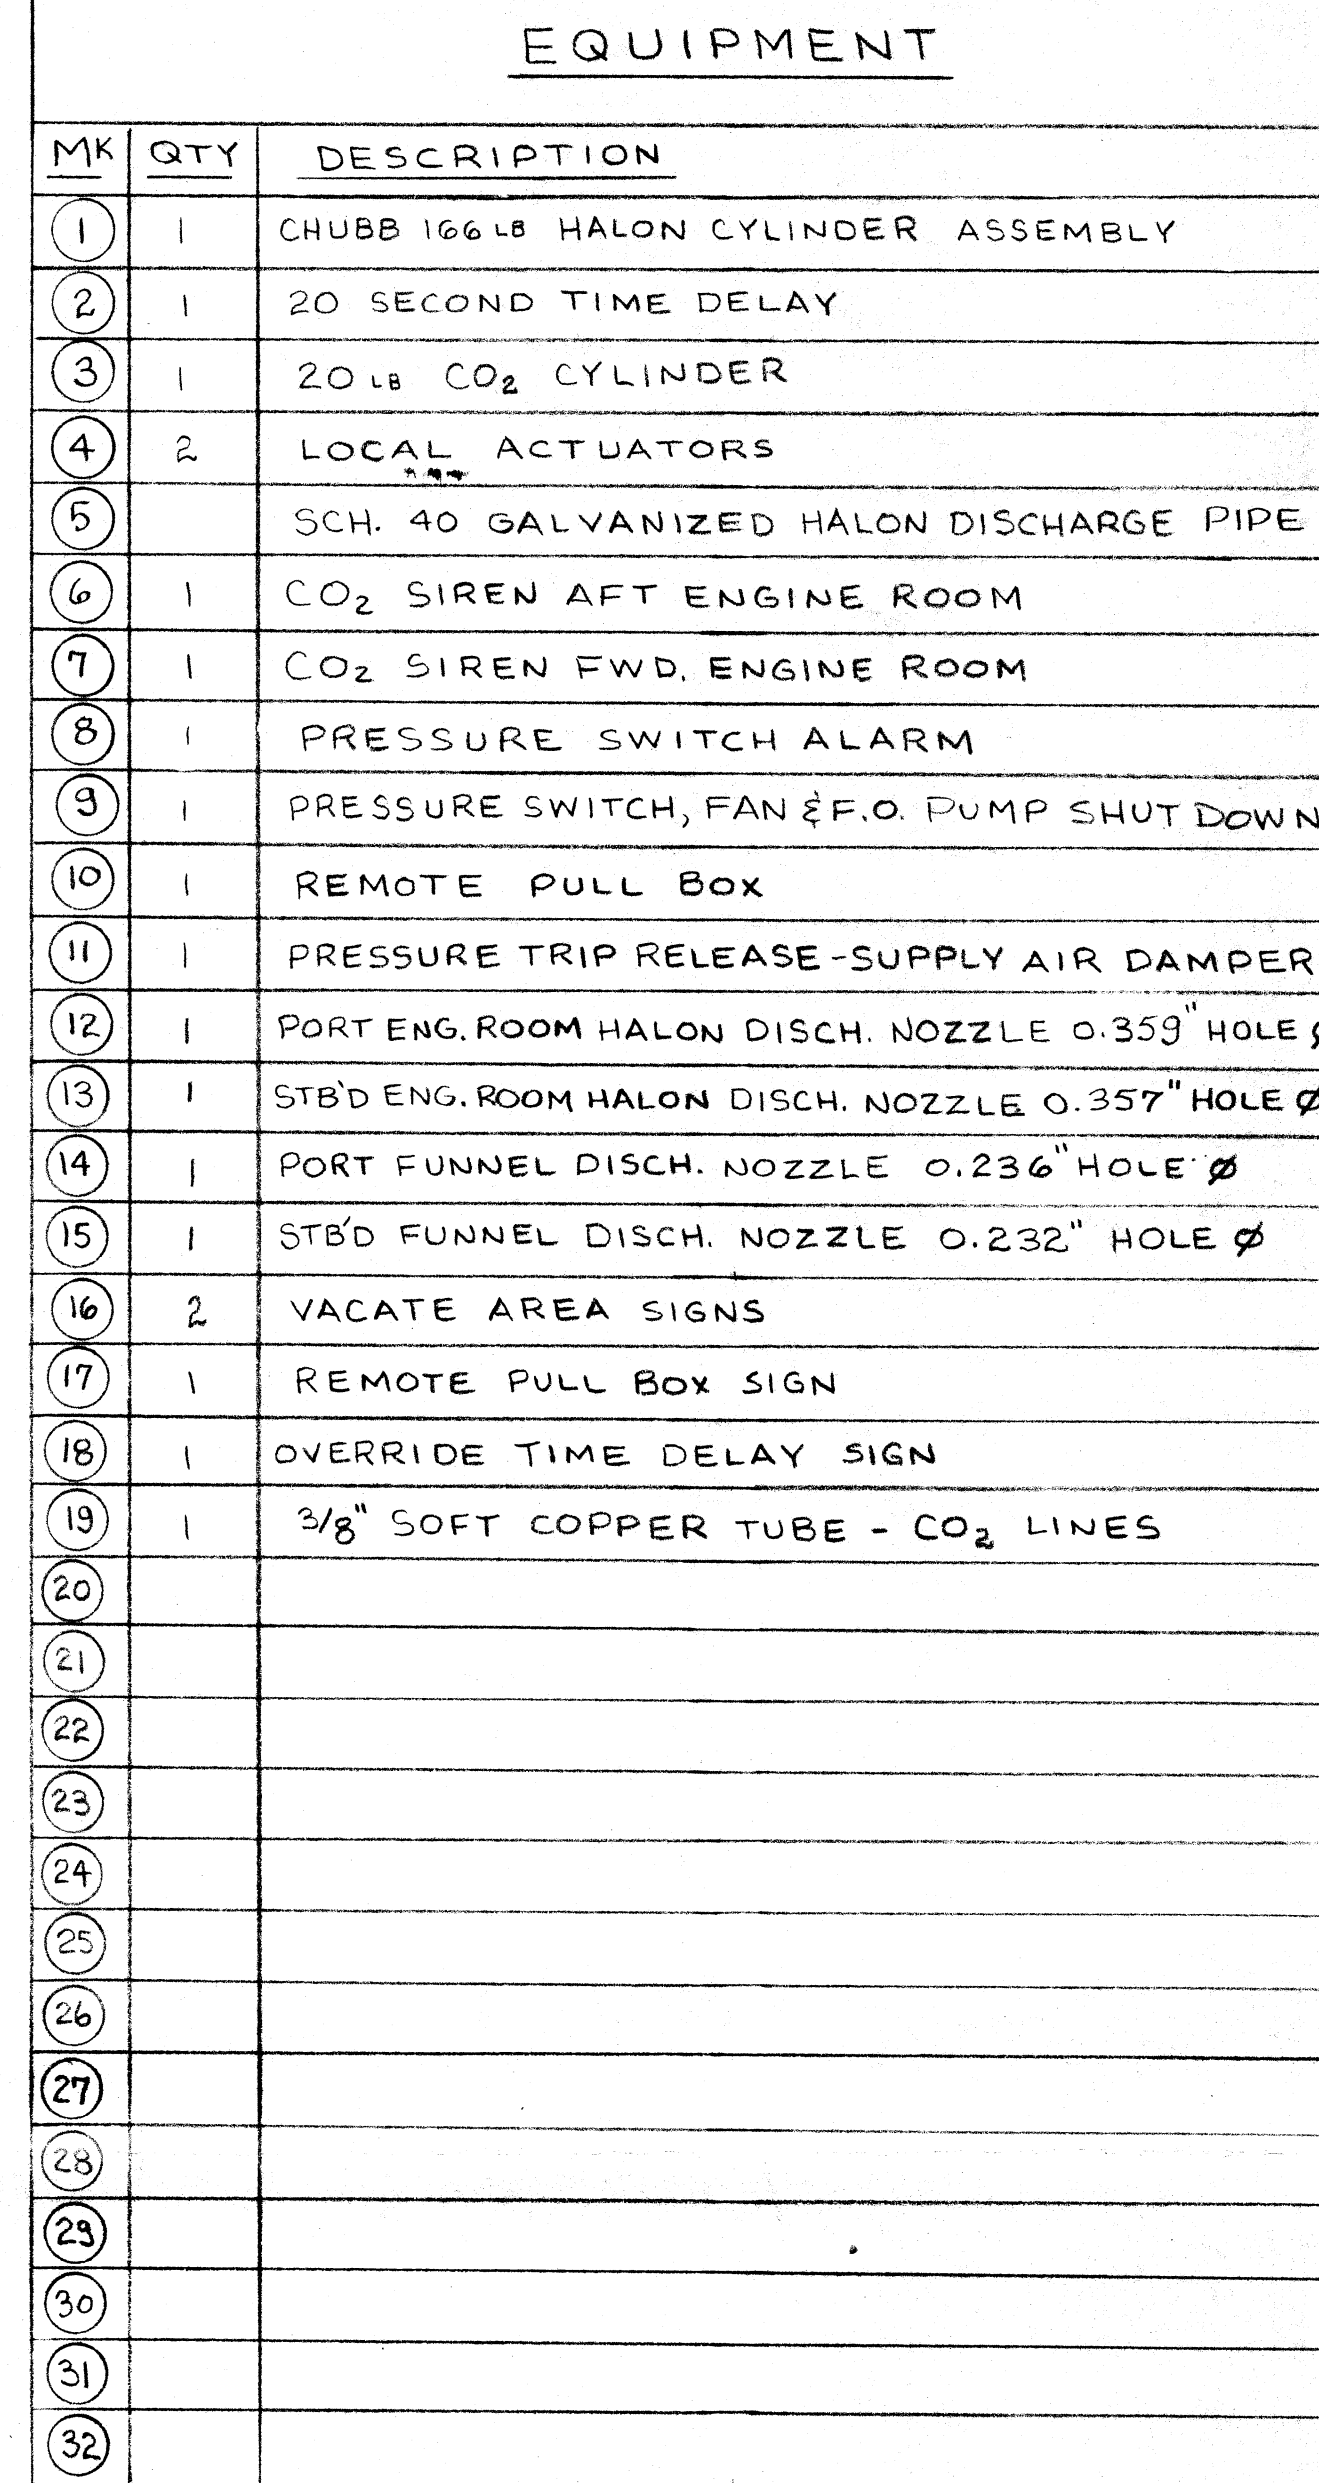 EQUIPMENT
MK QTY DESCRIPTION
1 1 CHUBB 166 LB HALON CYLINDER ASSEMBLY
2 1 20 SECOND TIME DELAY
3 1 20 LB CO₂ CYLINDER
4 2 LOCAL ACTUATORS
5 SCH. 40 GALVANIZED HALON DISCHARGE PIPE
6 1 CO₂ SIREN AFT ENGINE ROOM
7 1 CO₂ SIREN FWD. ENGINE ROOM
8 1 PRESSURE SWITCH ALARM
9 1 PRESSURE SWITCH, FAN & F.O. PUMP SHUT DOWN
10 1 REMOTE PULL BOX
11 1 PRESSURE TRIP RELEASE-SUPPLY AIR DAMPER
12 1 PORT ENG. ROOM HALON DISCH. NOZZLE 0.359" HOLE
13 1 STB'D ENG. ROOM HALON DISCH. NOZZLE 0.357" HOLE Ø
14 1 PORT FUNNEL DISCH. NOZZLE 0.236" HOLE Ø
15 1 STB'D FUNNEL DISCH. NOZZLE 0.232" HOLE Ø
16 2 VACATE AREA SIGNS
17 1 REMOTE PULL BOX SIGN
18 1 OVERRIDE TIME DELAY SIGN
19 1 3/8" SOFT COPPER TUBE - CO₂ LINES
20
21
22
23
24
25
26
27
28
29
30
31
32